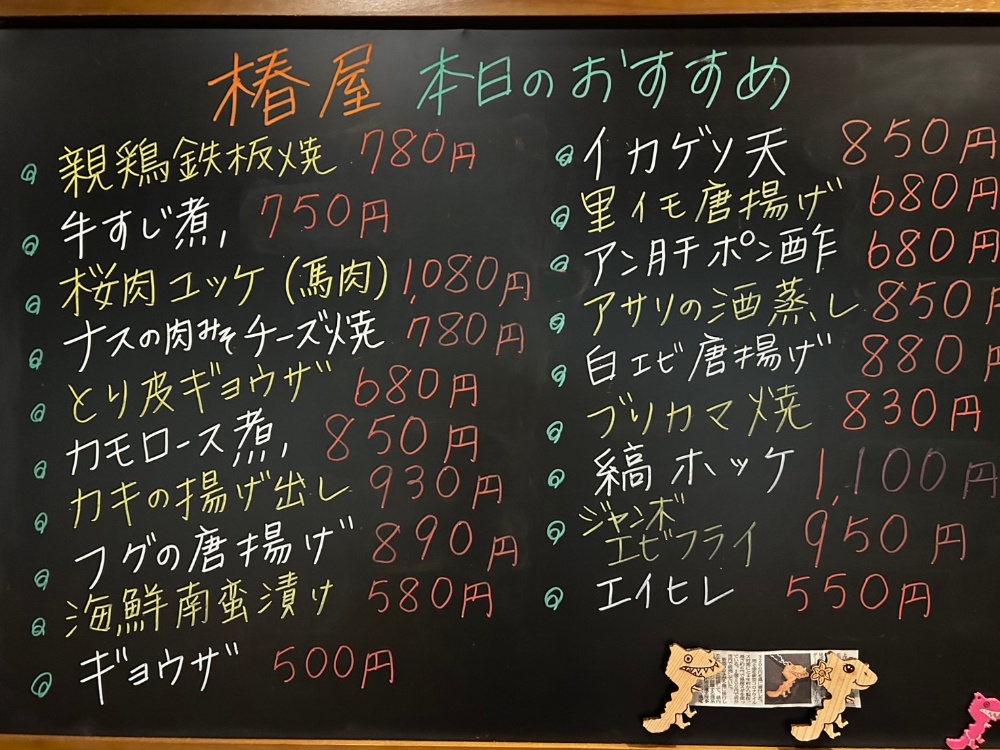 椿屋 本日のおすすめ
親鶏鉄板焼 780円
牛すじ煮, 750円
桜肉ユッケ(馬肉) 1,080円
ナスの肉みそチーズ焼 780円
とり皮ギョウザ 680円
カモロース煮, 850円
カキの揚げ出し 930円
フグの唐揚げ 890円
海鮮南蛮漬け 580円
ギョウザ 500円
イカゲソ天 850円
里イモ唐揚げ 680円
アン肝ポン酢 680円
アサリの酒蒸し 850円
白エビ唐揚げ 880円
ブリカマ焼 830円
縞ホッケ 1,100円
ジャンボ
エビフライ 950円
エイヒレ 550円